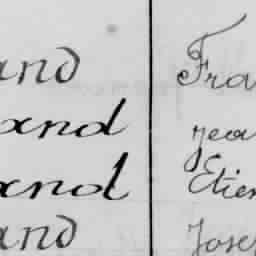 and Fra
and jea
and Etien
and Jose